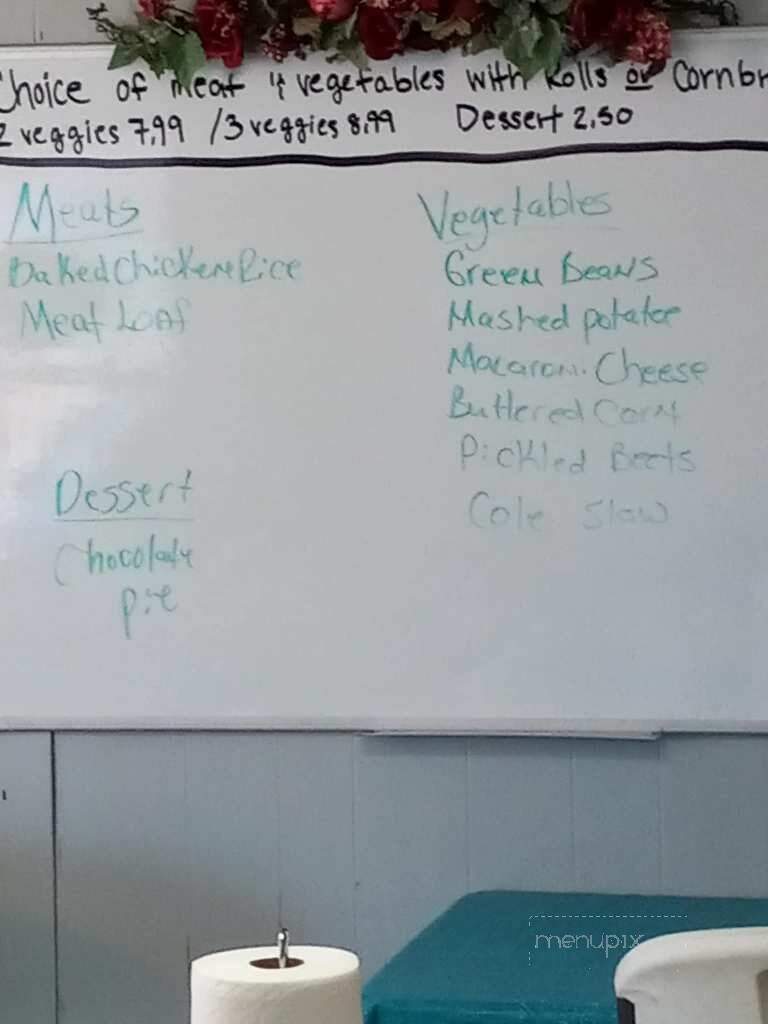 Choice of meat & vegetables with Rolls or Cornbr
2 veggies 7.99 / 3 veggies 8.99 Dessert 2.50
Meats
Baked Chicken Rice
Meat Loaf
Dessert
Chocolate
pie
Vegetables
Green Beans
Mashed potatoe
Macaroni Cheese
Buttered Corn
Pickled Beets
Cole Slaw
menupix